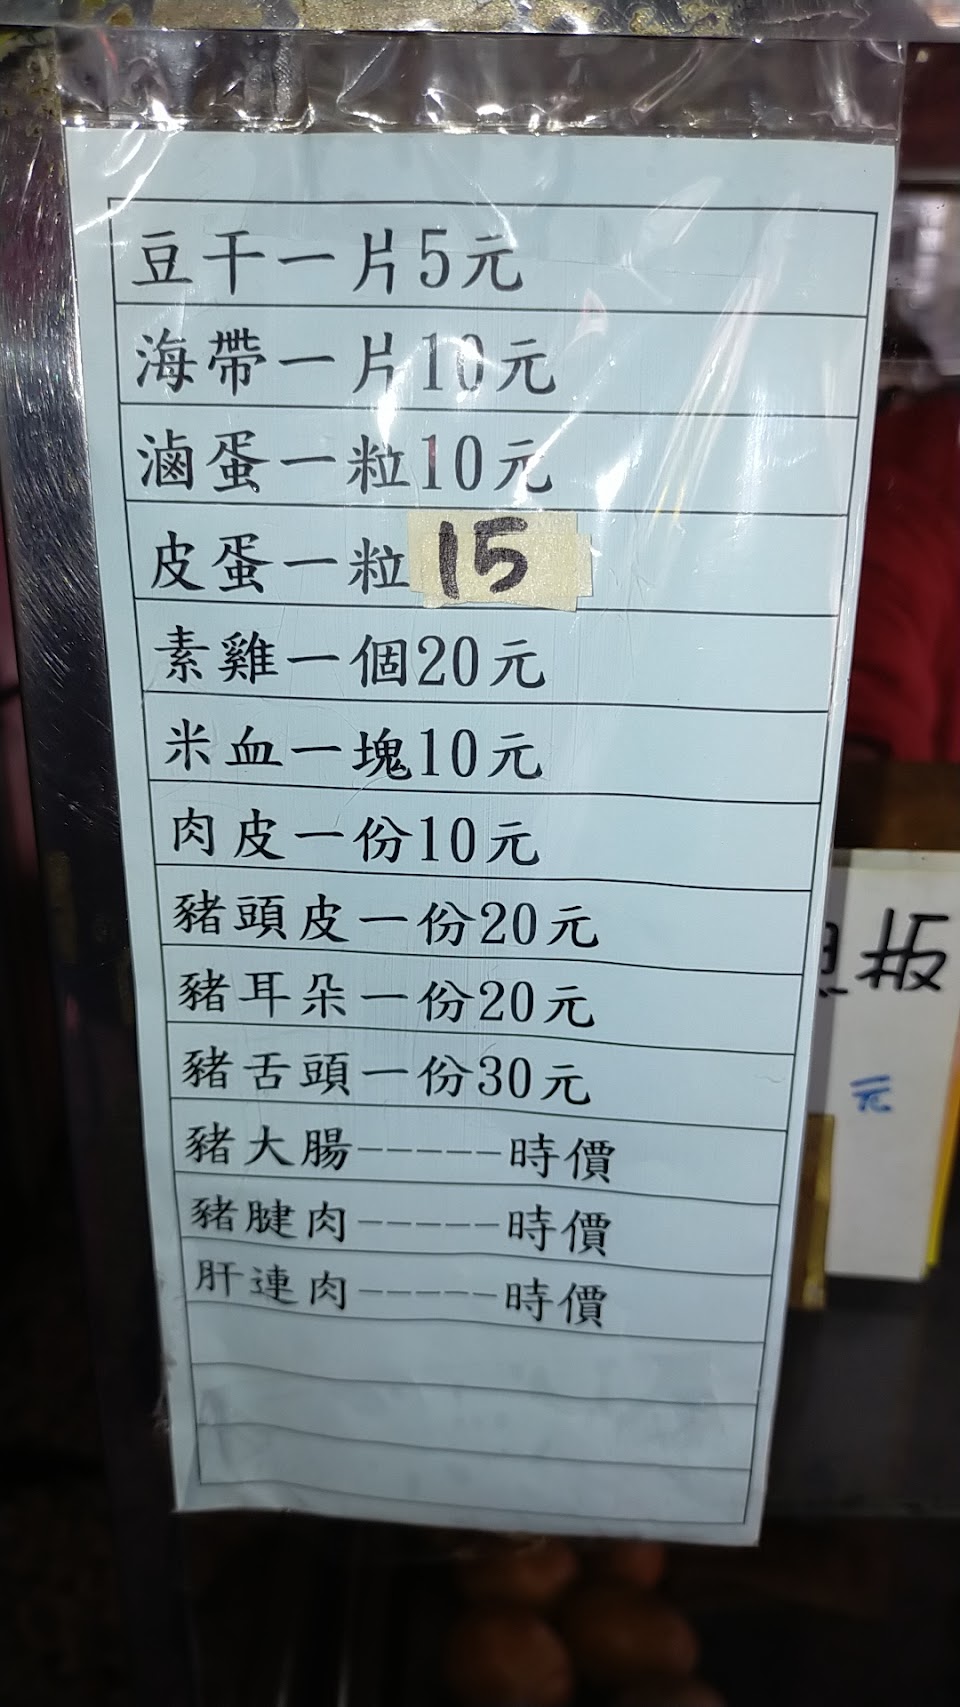 豆干一片5元
海帶一片10元
滷蛋一粒10元
皮蛋一粒15
素雞一個20元
米血一塊10元
肉皮一份10元
豬頭皮一份20元
豬耳朵一份20元
豬舌頭一份30元
豬大腸-----時價
豬腱肉-----時價
肝連肉-----時價
板
元